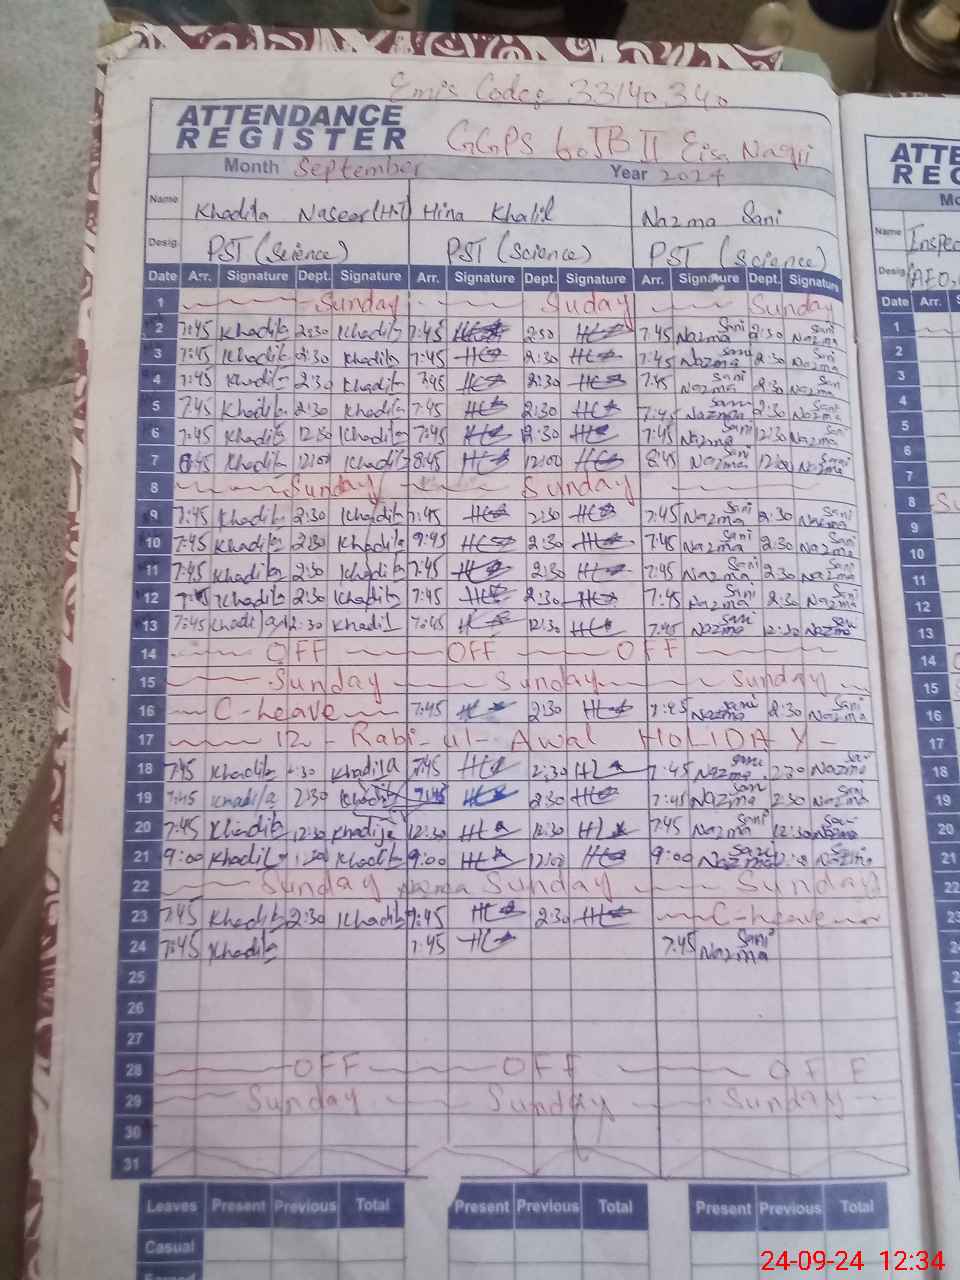 Emis Code: 33140340
ATTENDANCE
REGISTER
GGPS 60JB II Eisa Nagri
Month September Year 2024
Name Khadija Naseer (HT) Hina Khalil Nazma Sani
Desig. PST (Science) PST (Science) PST (Science)
Date Arr. Signature Dept. Signature Arr. Signature Dept. Signature Arr. Signature Dept. Signature
1 Sunday Suday Sunday
2 7:45 Khadija 2:30 Khadija 7:45 2:30 7:45 Nazma Sani 2:30 Nazma Sani
3 7:45 Khadija 2:30 Khadija 7:45 2:30 7:45 Nazma Sani 2:30 Nazma Sani
4 7:45 Khadija 2:30 Khadija 7:45 2:30 7:45 Nazma Sani 2:30 Nazma Sani
5 7:45 Khadija 2:30 Khadija 7:45 2:30 7:45 Nazma Sani 2:30 Nazma Sani
6 7:45 Khadija 12:30 Khadija 7:45 2:30 7:45 Nazma Sani 12:30 Nazma Sani
7 8:45 Khadija 12:00 Khadija 8:45 12:00 8:45 Nazma Sani 12:00 Nazma Sani
8 Sunday Sunday
9 7:45 Khadija 2:30 Khadija 7:45 2:30 7:45 Nazma Sani 2:30 Nazma Sani
10 7:45 Khadija 2:30 Khadija 9:45 2:30 7:45 Nazma Sani 2:30 Nazma Sani
11 7:45 Khadija 2:30 Khadija 7:45 2:30 7:45 Nazma Sani 2:30 Nazma Sani
12 7:45 Khadija 2:30 Khadija 7:45 2:30 7:45 Nazma Sani 2:30 Nazma Sani
13 7:45 Khadija 12:30 Khadija 7:45 12:30 7:45 Nazma Sani 12:30 Nazma Sani
14 OFF OFF OFF
15 Sunday Sunday Sunday
16 C-leave 7:45 2:30 7:45 Nazma Sani 2:30 Nazma Sani
17 12 - Rabi-ul-Awal HOLIDAY
18 7:45 Khadija 2:30 Khadija 7:45 2:30 7:45 Nazma Sani 2:30 Nazma Sani
19 7:45 Khadija 2:30 Khadija 7:45 2:30 7:45 Nazma Sani 2:30 Nazma Sani
20 7:45 Khadija 12:30 Khadija 12:30 12:30 7:45 Nazma Sani 12:30 Nazma Sani
21 9:00 Khadija Khadija 9:00 12:00 9:00 Nazma Sani Nazma Sani
22 Sunday Sunday Sunday
23 7:45 Khadija 2:30 Khadija 7:45 2:30 C-leave
24 7:45 Khadija 7:45 7:45 Nazma Sani
25
26
27
28 OFF OFF OFF
29 Sunday Sunday Sunday
30
31
Leaves Present Previous Total Present Previous Total Present Previous Total
Casual
ATTE
REG
Mo
Name Inspec
Desig. AEO
Date Arr.
1
2
3
4
5
6
7
8 Su
9
10
11
12
13
14
15
16
17
18
19
20
21
22
24-09-24 12:34